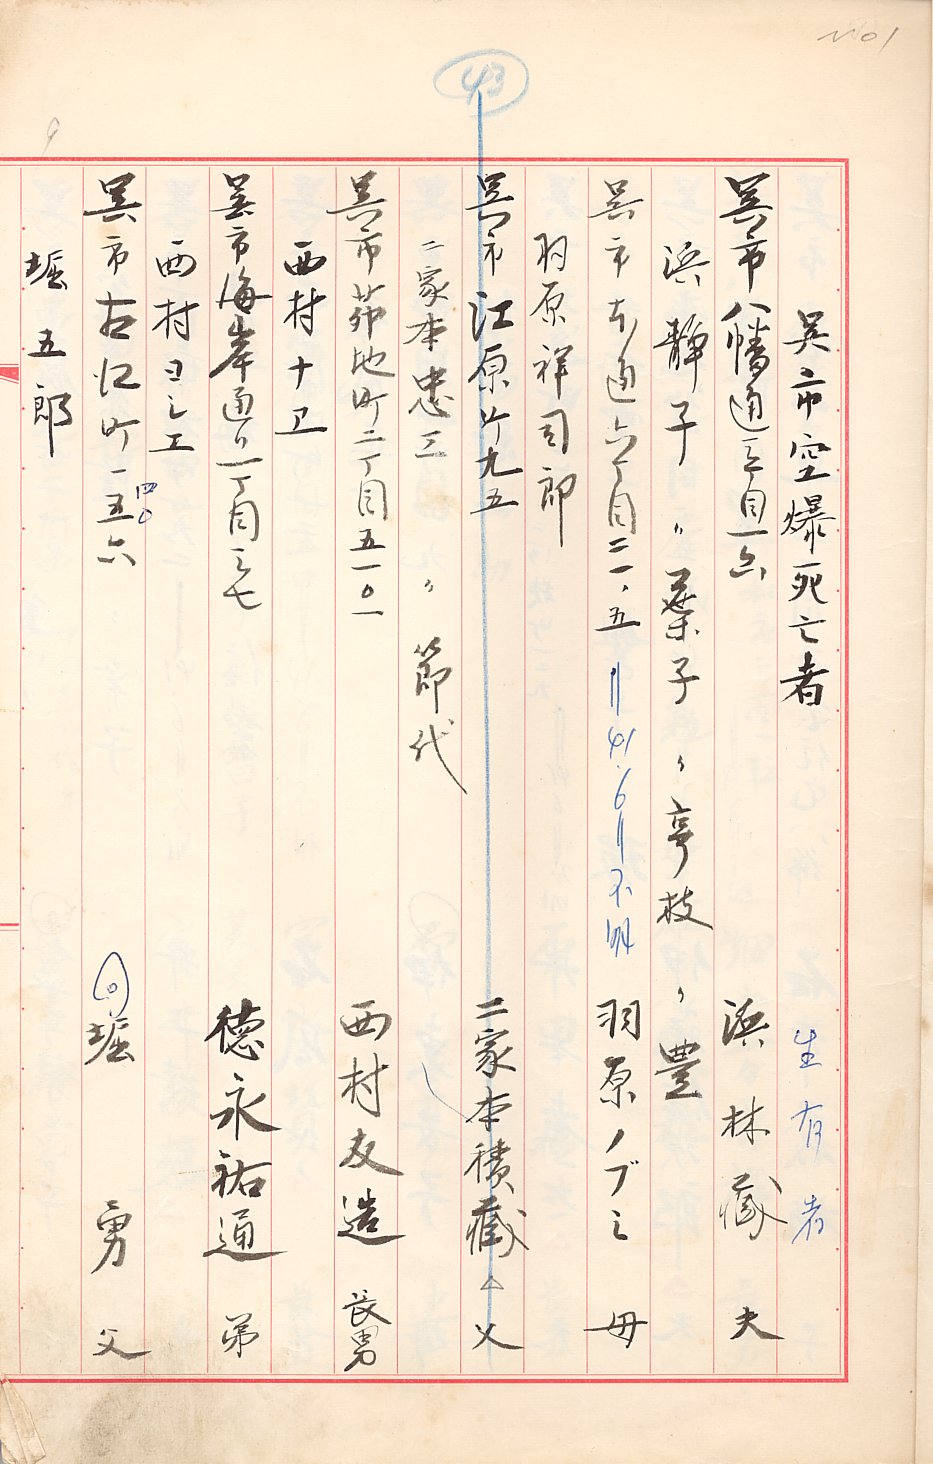 No1
43
呉市空爆死亡者 生存者
呉市八幡通三丁目一六 浜林蔵 夫
浜静子 〃葉子 〃亨枝 〃豊
呉市本通六丁目二一、五 =41.6=不明 羽原ノブヨ 母
羽原祥司郎
呉市江原町九五 二家本積蔵 △ 父
二家本忠三 〃節代
呉市茆地町二丁目五一〇一 西村友造 長男
西村十卫
呉市海岸通り一丁目三七 徳永祐通 弟
西村ヨシエ
呉市古江町一五六 四〇 堀 勇 父
堀 五郎